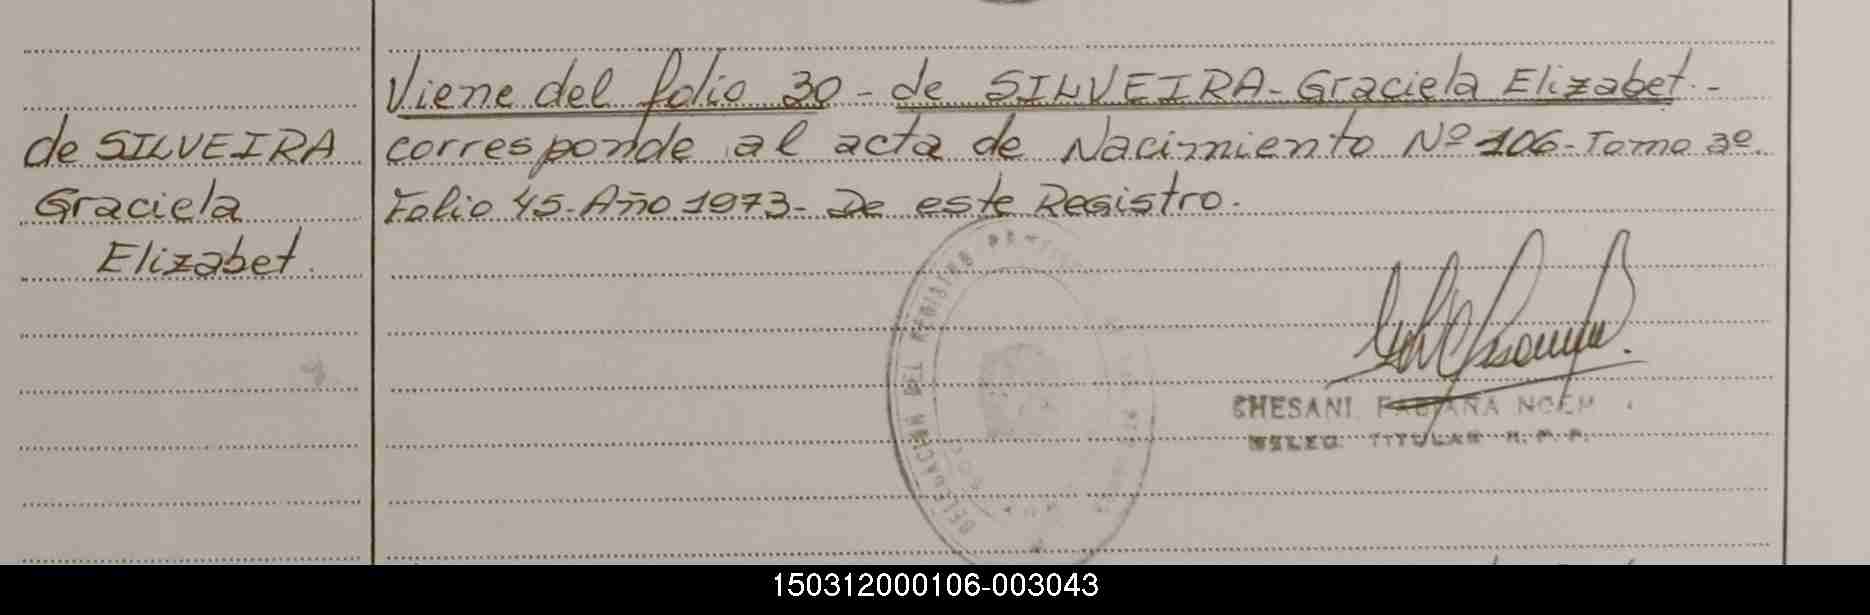 de SILVEIRA
Graciela
Elizabet.
Viene del folio 30 - de SILVEIRA - Graciela Elizabet. -
corresponde al acta de Nacimiento Nº 106 - Tomo 3º.
Folio 45 - Año 1973 - De este Registro.
CHESANI FABIANA NOEM
TITULAR
DELEGACION DEL REGISTRO
150312000106-003043